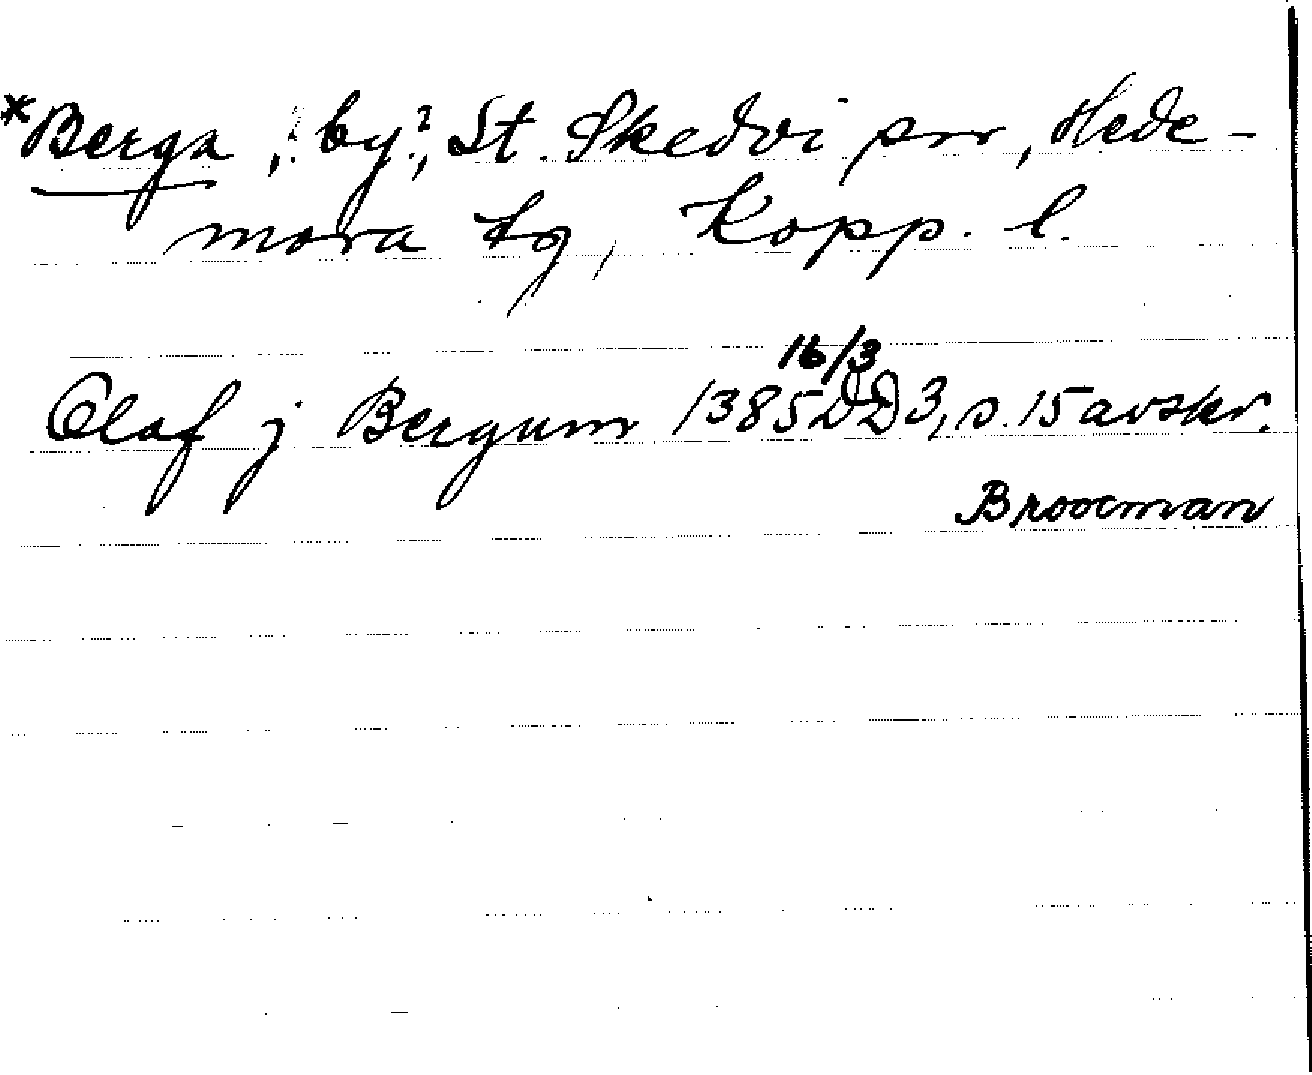 *Berga, by?, St. Skedvi snr, Hede-
mora tg, Kopp. l.
16/3
Olaf j Bergum 1385 DD 3, s. 15 avskr.
Broocman